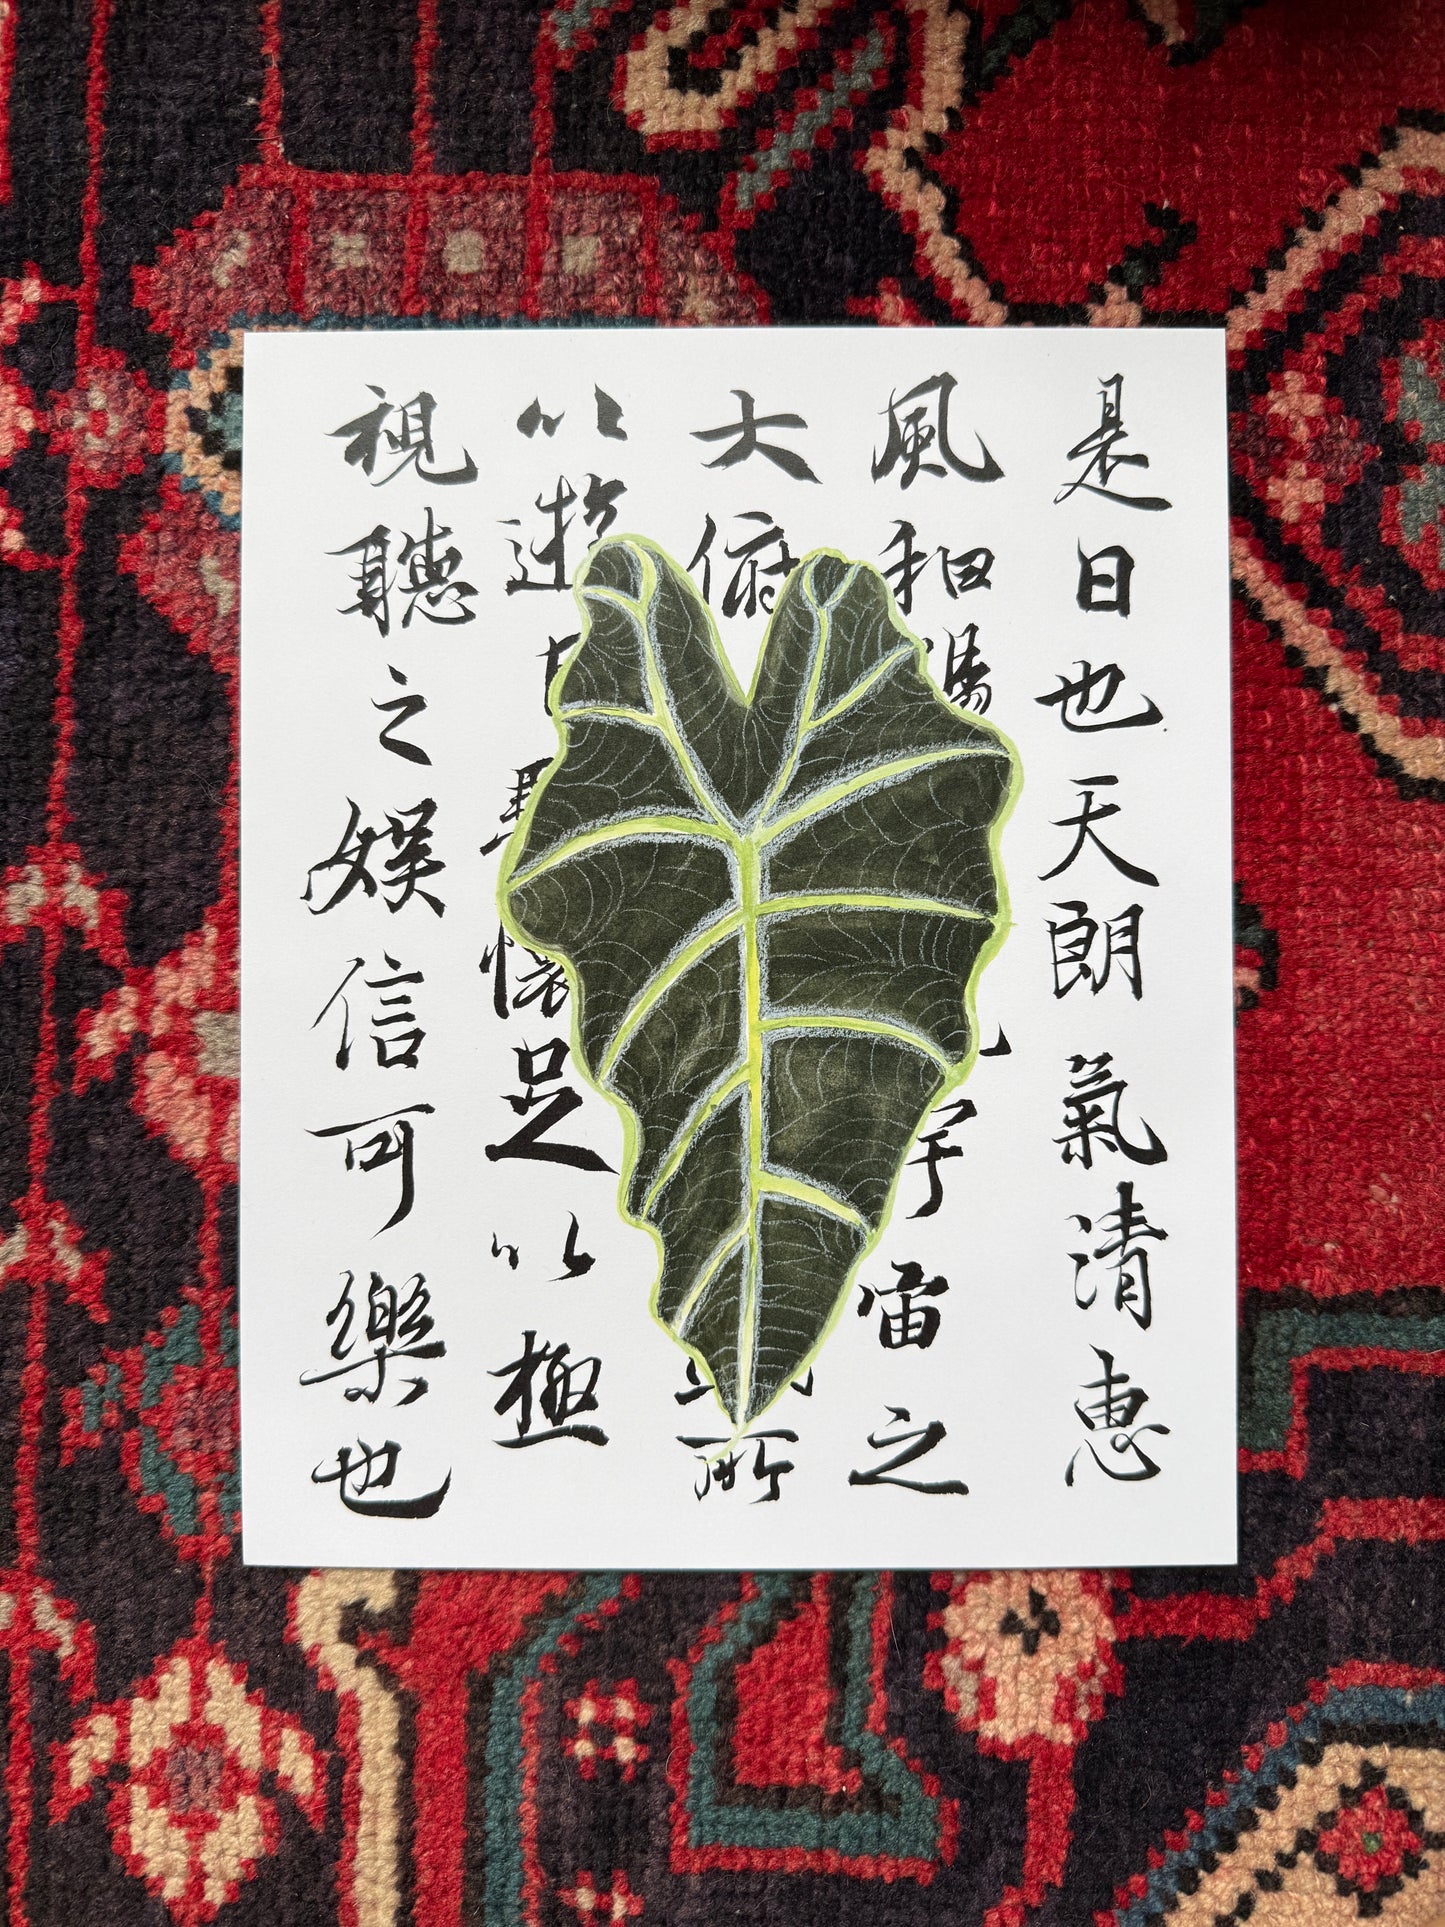 是日也天朗氣清惠
風和宇宙之
大俯所
以遊懷足以極
視聽之娛信可樂也